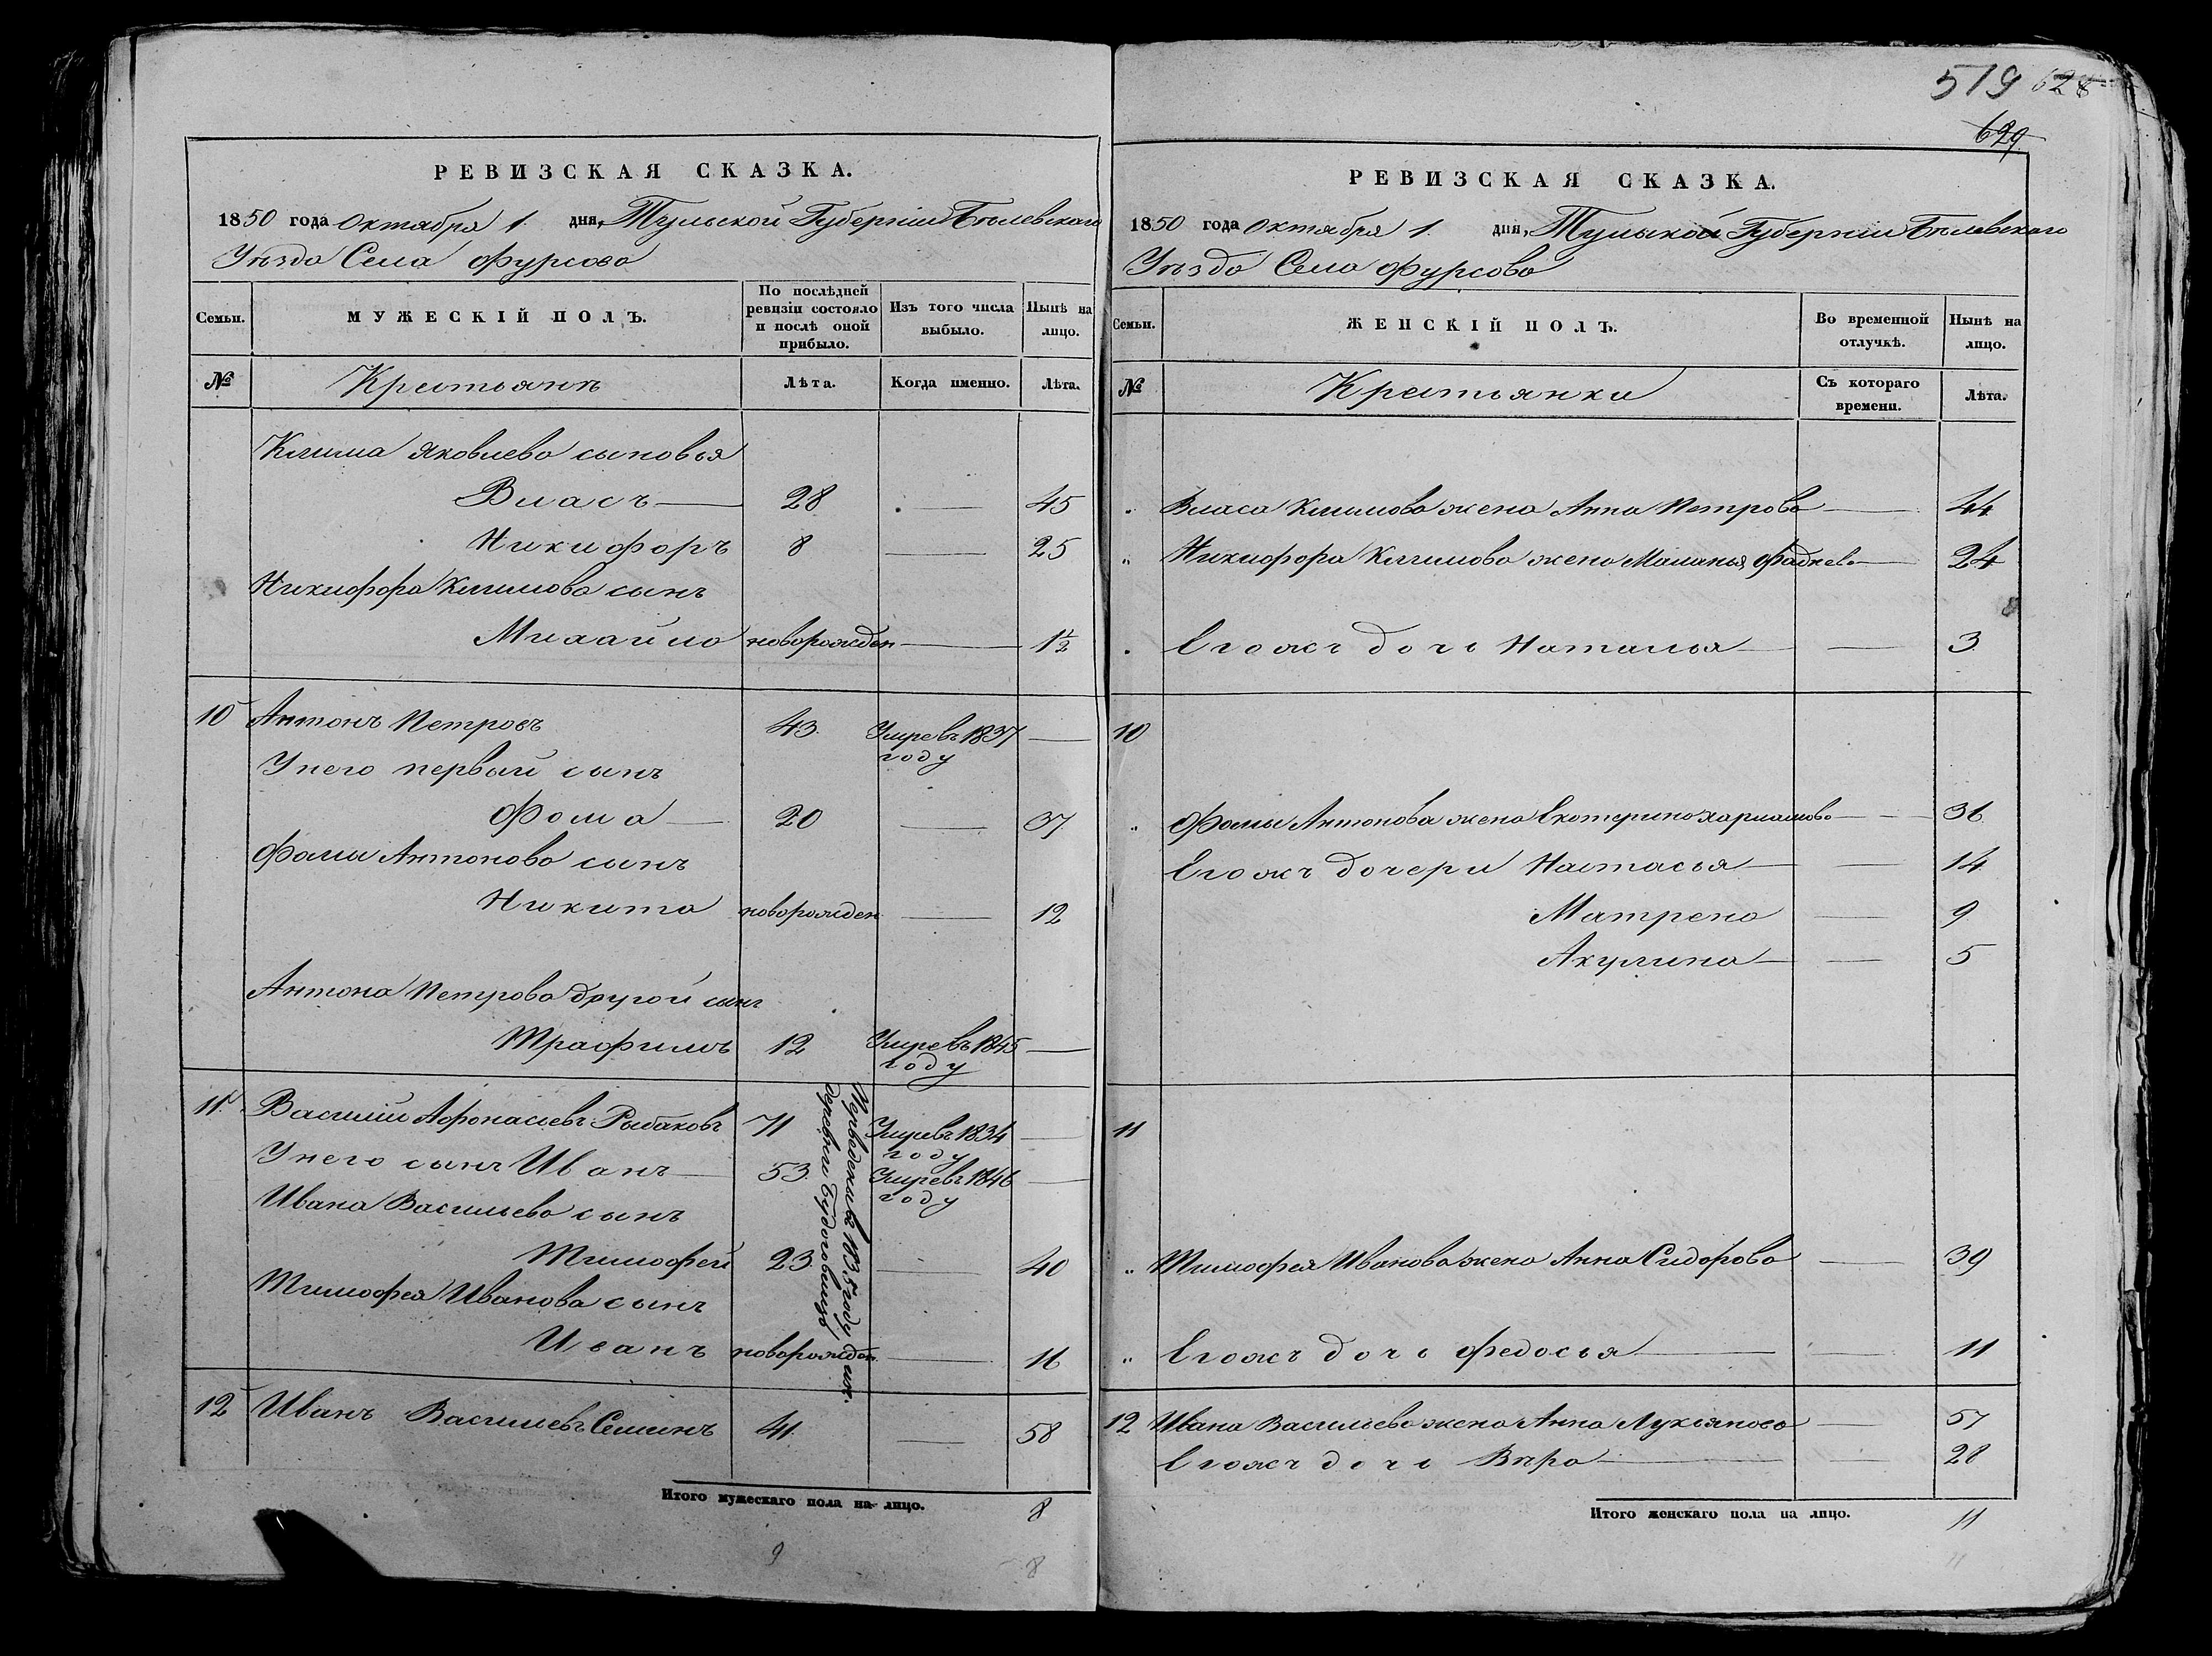 519 628
629
РЕВИЗСКАЯ СКАЗКА.
1850 года октября 1. дня, Тульской Губерніи Бѣлевскаго
Уѣзда Села Фурсова
Семьи.
МУЖЕСКІЙ ПОЛЪ.
По послѣдней ревизіи состояло и послѣ оной прибыло.
Изъ того числа выбыло.
Нынѣ на лицо.
№ Крестьянѣ Лѣта. Когда именно. Лѣта.
Клима Яковлева сыновья
Власъ 28 — 45
Никифоръ 8 — 25
Никифора Климова сынъ
Михайло новорожден — 1½
10 Антонъ Петровъ 43. Умре въ 1837 году —
У него первый сынъ
Фома 20 — 37
Фомы Антонова сынъ
Никита новорожден — 12
Антона Петрова другой сынъ
Трафимъ 12 Умре въ 1845 году —
11. Василій Афонасьевъ Рыбаковъ 71 Умре въ 1834 году —
У него сынъ Иванъ 53. Умре въ 1846 году —
Ивана Васильева сынъ
Тимофей 23 — 40
Тимофея Иванова сынъ
Иванъ новорожден — 16
Переведены въ 1835 году изъ
деревни
12 Иванъ Васильевъ Семинъ 41. — 58
Итого мужескаго пола на лицо. 8
9 8
РЕВИЗСКАЯ СКАЗКА.
1850 года октября 1. дня, Тульской Губерніи Бѣлевскаго
Уѣзда Села Фурсова
Семьи.
ЖЕНСКІЙ ПОЛЪ.
Во временной отлучкѣ.
Нынѣ на лицо.
№ Крестьянки Съ котораго времени. Лѣта.
" Власа Климова жена Анна Петрова — 44
" Никифора Климова жена Маланья Фадѣева — 24
" Егожъ дочь Наталья — 3
10
" Фомы Антонова жена Екатерина Харламова — 36
Егожъ дочери Настасья — 14
Матрена — 9
Акулина — 5
11
" Тимофея Иванова жена Анна Сидорова — 39
" Егожъ дочь Федосья — 11
12 Ивана Васильева жена Анна Лукьянова — 57
Егожъ дочь Вѣра — 28
Итого женскаго пола на лицо. 11
11